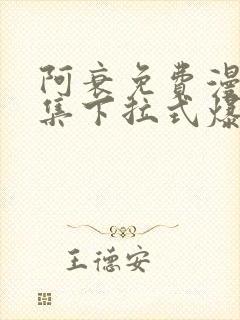 阿衰免費漫
集下拉式爆
王德安